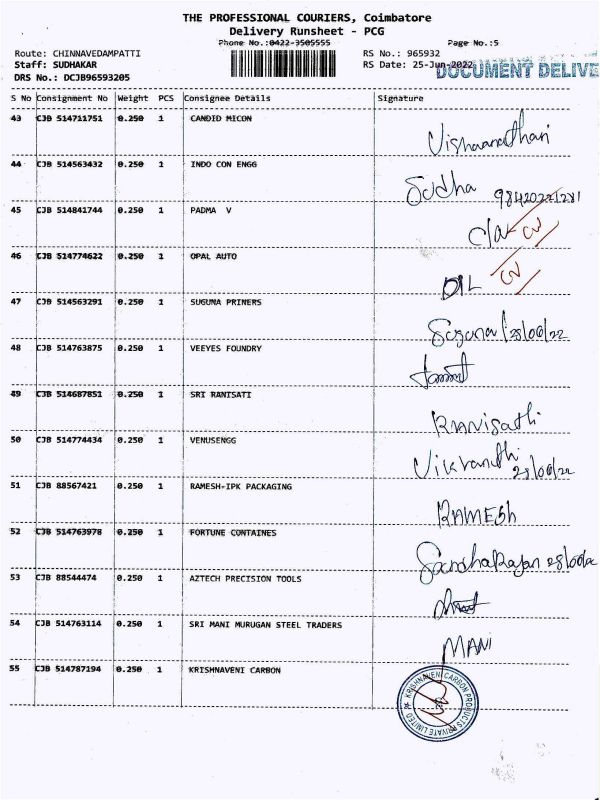 THE PROFESSIONAL COURIERS, Coimbatore
Delivery Runsheet - PCG
Phone No.:0422-3505555 Page No.:5
Route: CHINNAVEDAMPATTI RS No.: 965932
Staff: SUDHAKAR RS Date: 25-Jun-2022
DOCUMENT DELIVE
DRS No.: DCJB96593205
S No Consignment No Weight PCS Consignee Details Signature
43 CJB 514711751 0.250 1 CANDID MICON
44 CJB 514563432 0.250 1 INDO CON ENGG Sudha
45 CJB 514841744 0.250 1 PADMA V
46 CJB 514774622 0.250 1 OPAL AUTO
47 CJB 514563291 0.250 1 SUGUNA PRINERS Suguna/28/06/22
48 CJB 514763875 0.250 1 VEEYES FOUNDRY
49 CJB 514687851 0.250 1 SRI RANISATI RANisathi
50 CJB 514774434 0.250 1 VENUSENGG 28/06/22
51 CJB 88567421 0.250 1 RAMESH-IPK PACKAGING RAMESh
52 CJB 514763978 0.250 1 FORTUNE CONTAINES
53 CJB 88544474 0.250 1 AZTECH PRECISION TOOLS
54 CJB 514763114 0.250 1 SRI MANI MURUGAN STEEL TRADERS MANi
55 CJB 514787194 0.250 1 KRISHNAVENI CARBON
KRISHNAVENI CARBON PRODUCTS PRIVATE LIMITED